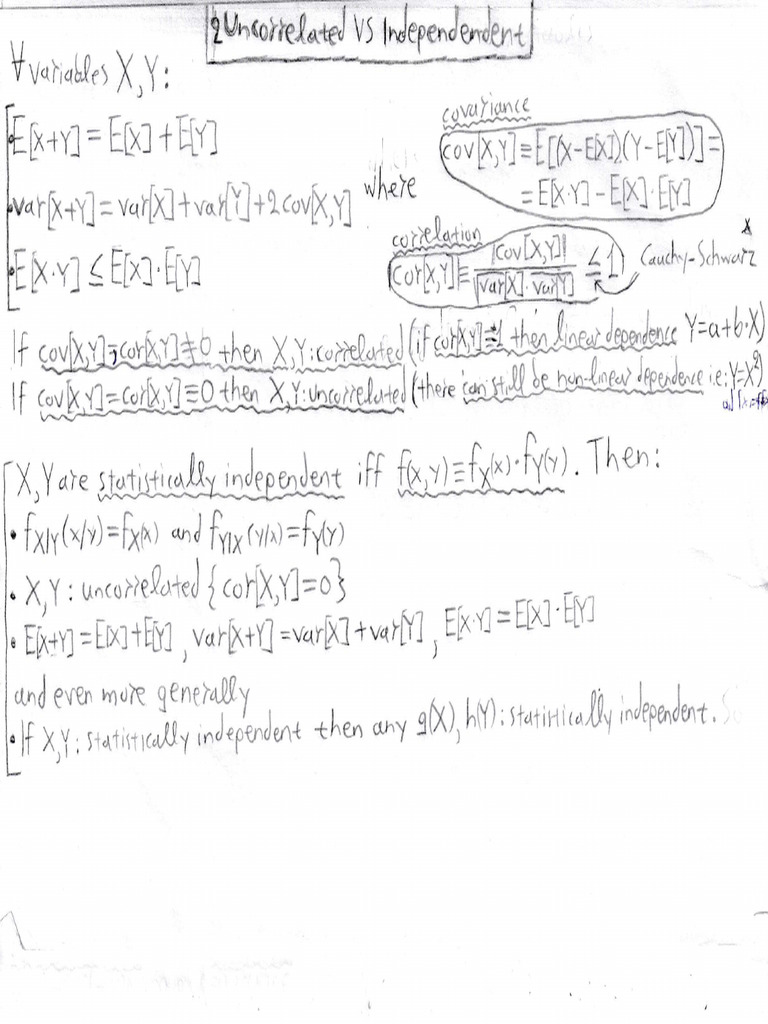 2 Uncorrelated VS Independendent
∀ variables X,Y:
• E[X+Y] = E[X] + E[Y]
• var[X+Y] = var[X] + var[Y] + 2cov[X,Y] where
covariance
cov[X,Y] ≡ E[(X-E[X])(Y-E[Y])] =
= E[X·Y] - E[X]·E[Y]
• E[X·Y] ≤ E[X]·E[Y]
correlation
cor[X,Y] ≡ |cov[X,Y]| / √var[X]·var[Y] ≤ 1 Cauchy-Schwarz
If cov[X,Y], cor[X,Y] ≠ 0 then X,Y: correlated (if cor[X,Y]=1 then linear dependence Y=a+b·X)
If cov[X,Y]=cor[X,Y]≡0 then X,Y: uncorrelated (there can still be non-linear dependence i.e: Y=X²)
X,Y are statistically independent iff f(x,y) ≡ fX(x)·fY(y). Then:
• fX|Y(x/y) = fX(x) and fY|X(y/x) = fY(y)
• X,Y: uncorrelated {cor[X,Y]=0}
• E[X+Y] = E[X]+E[Y], var[X+Y] = var[X]+var[Y], E[X·Y] = E[X]·E[Y]
and even more generally
• If X,Y: statistically independent then any g(X), h(Y): statistically independent.